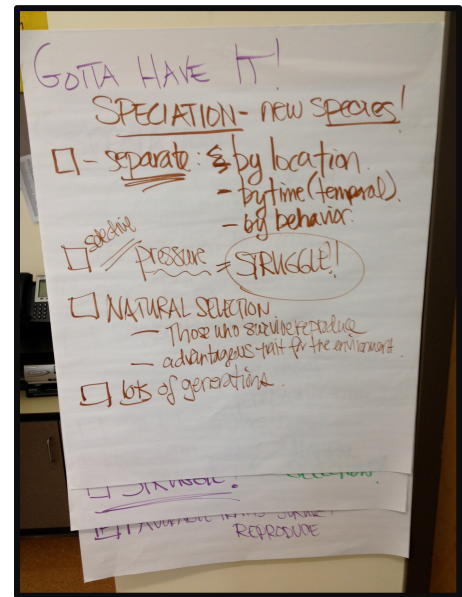 GOTTA HAVE IT!
SPECIATION - new species!
- separate : by location
- by time (temporal).
- by behavior.
selective
pressure = STRUGGLE!!
NATURAL SELECTION
- Those who survive reproduce
- advantageous trait for the environment.
lots of generations.
STRUGGLE!
REPRODUCE